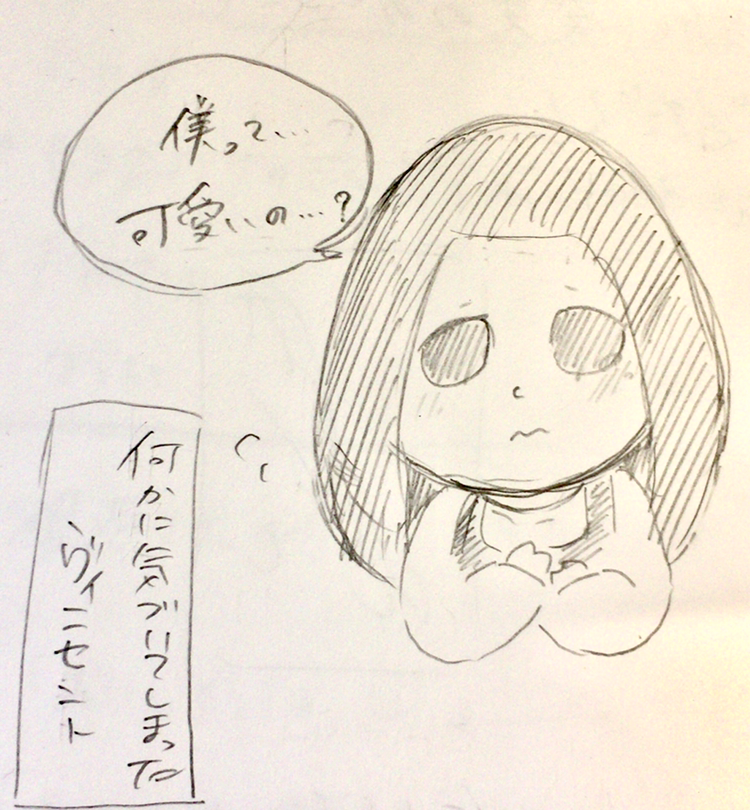 僕って…
可愛いの…?
何かに気づいてしまった
ヴィンセント